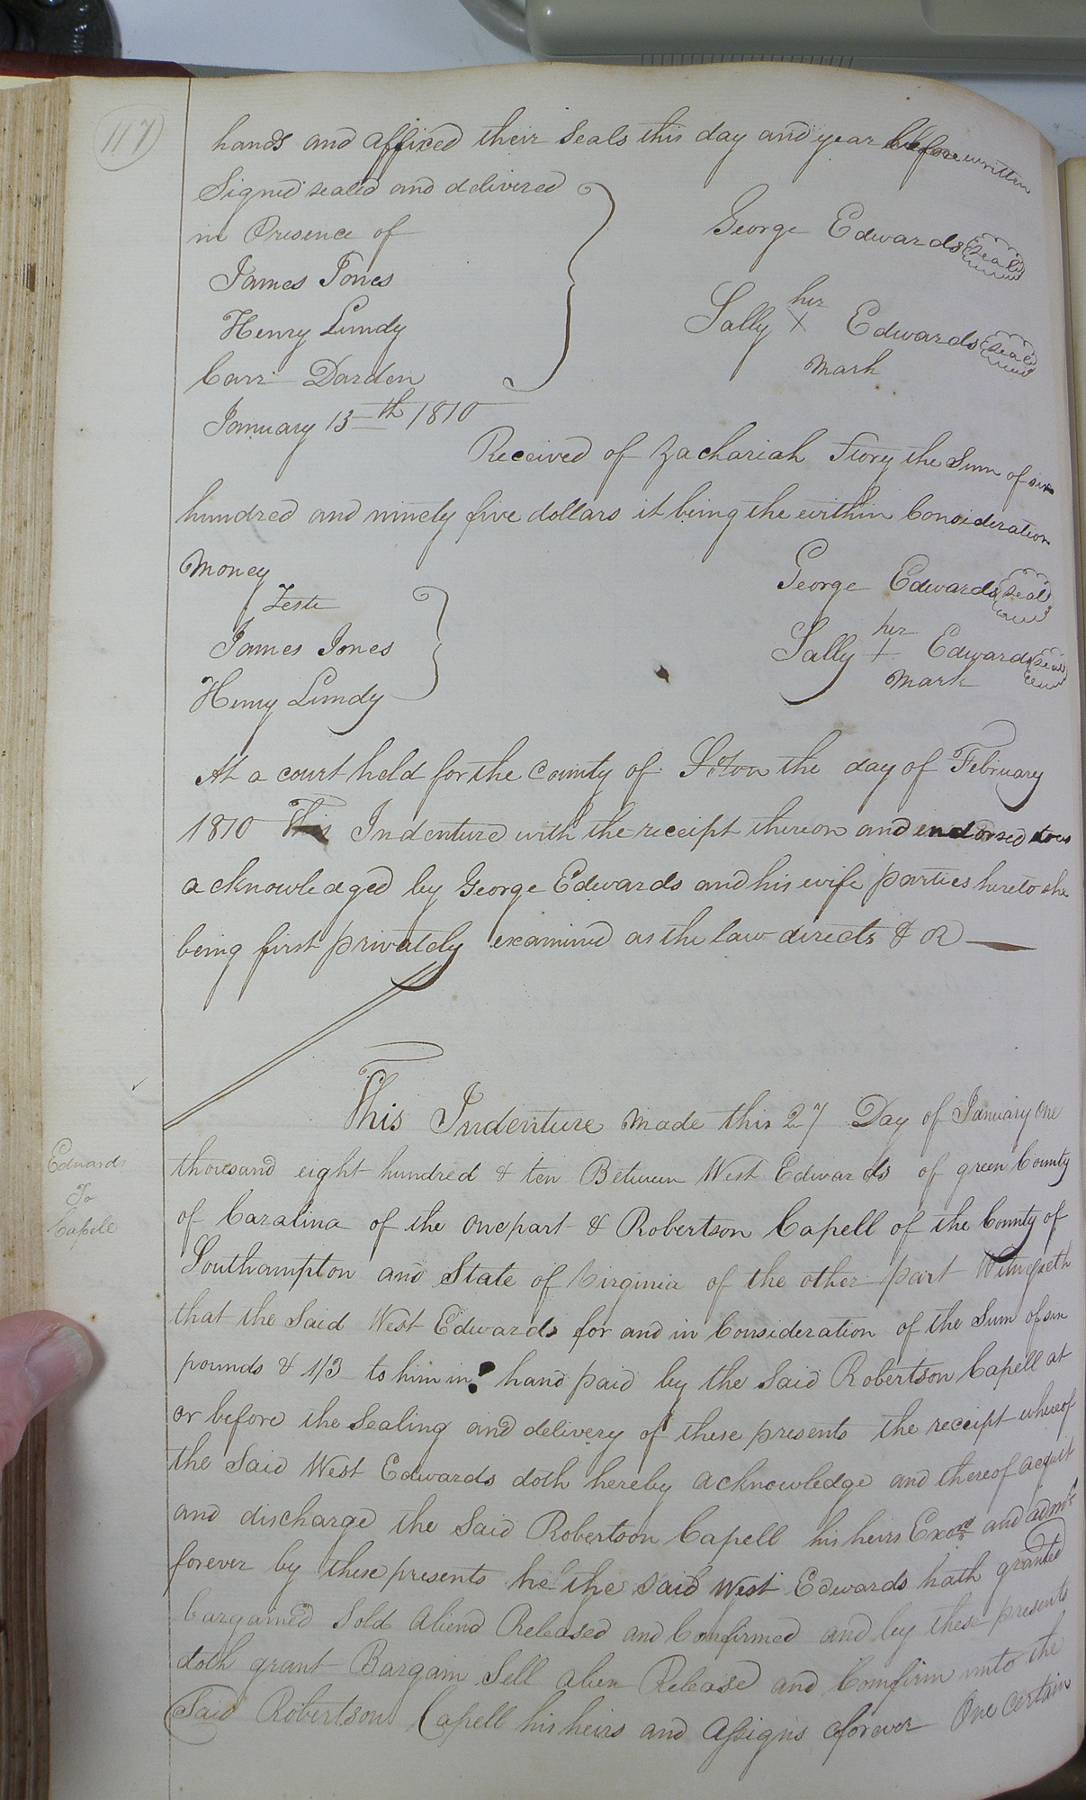 117
hands and affixed their Seals this day and year before written
Signed sealed and delivered
in Presence of
George Edwards Seal
James Jones
her
Henry Lundy
Sally X Edwards Seal
mark
Carr Darden
January 13th 1810
Received of Zachariah Story the Sum of six
hundred and ninety five dollars it being the within Consideration
money
George Edwards Seal
Teste
her
James Jones
Sally + Edwards Seal
mark
Henry Lundy
At a court held for the County of Soton the day of February
1810 This Indenture with the receipt thereon endorsed was
acknowledged by George Edwards and his wife parties hereto she
being first privately examined as the law directs & R
This Indenture made this 27 Day of January One
Edwards
To
Capele
thousand eight hundred & ten Between West Edwards of green County
of Caralina of the one part & Robertson Capell of the County of
Southampton and State of Virginia of the other part Witnesseth
that the Said West Edwards for and in Consideration of the Sum of six
pounds & 1/3 to him in hand paid by the Said Robertson Capell at
or before the Sealing and delivery of these presents the receipt whereof
the Said West Edwards doth hereby acknowledge and thereof acquit
and discharge the Said Robertson Capell his heirs Exors and admrs
forever by these presents he the Said West Edwards hath granted
bargained Sold aliend Released and Confirmed and by these presents
doth grant Bargain Sell alien Release and Comfirm unto the
Said Robertson Capell his heirs and Assigns forever One certain